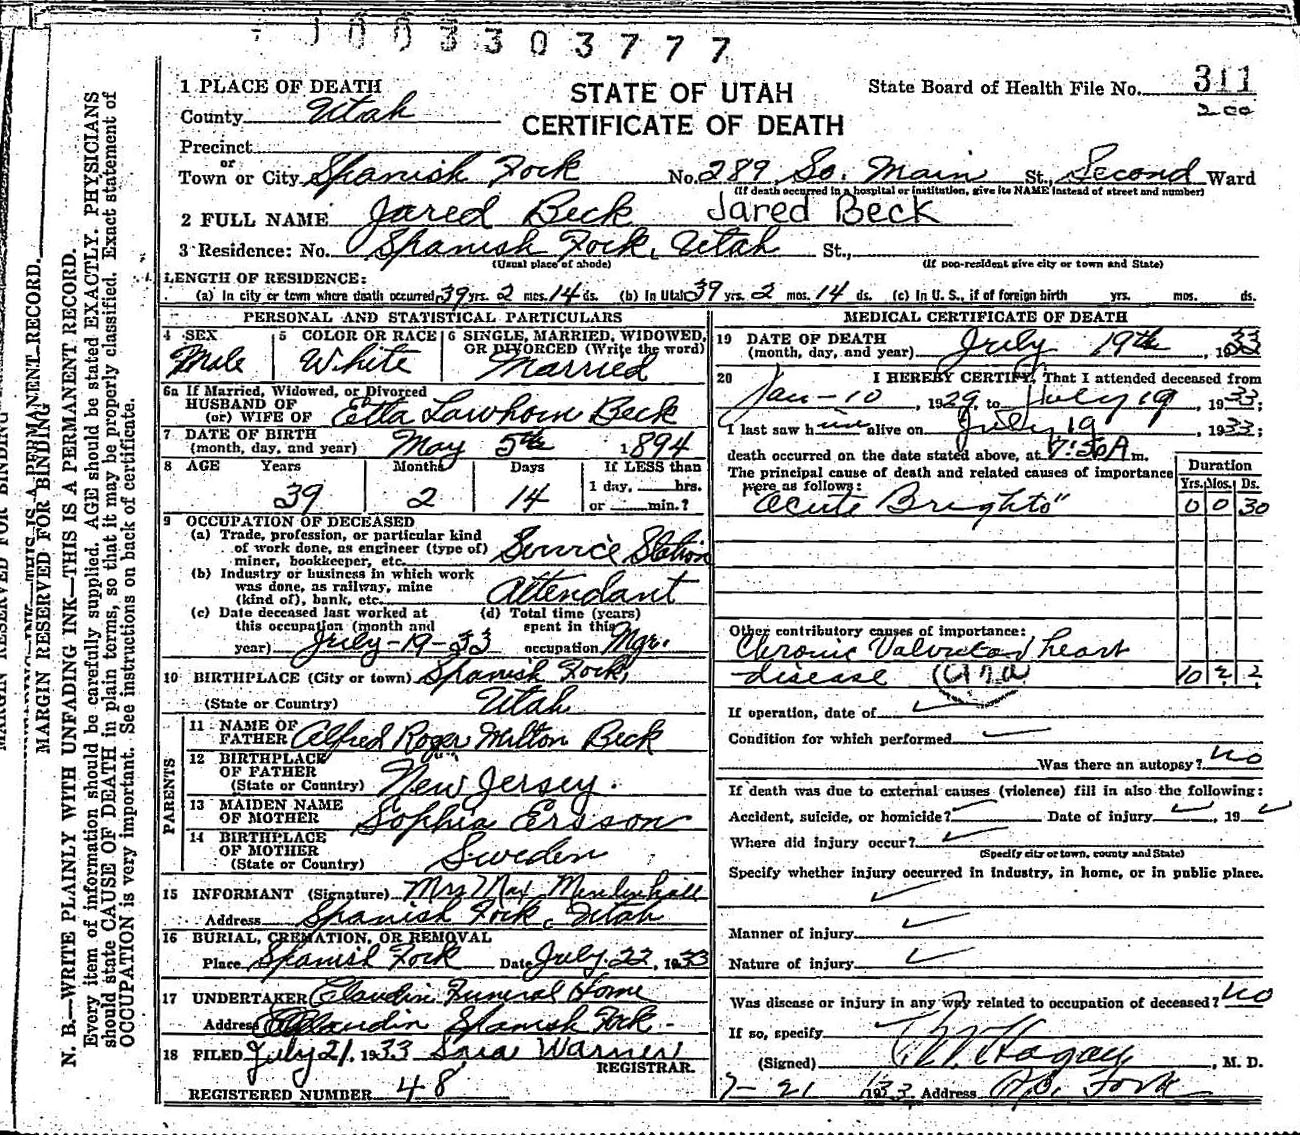 1003303777
1 PLACE OF DEATH
STATE OF UTAH
CERTIFICATE OF DEATH
State Board of Health File No. 311
200
County Utah
Precinct
or
Town or City Spanish Fork No. 289 So. Main St., Second Ward
(If death occurred in a hospital or institution, give its NAME instead of street and number)
2 FULL NAME Jared Beck Jared Beck
3 Residence: No. Spanish Fork, Utah St.,
(Usual place of abode) (If non-resident give city or town and State)
LENGTH OF RESIDENCE:
(a) In city or town where death occurred 39 yrs. 2 mos. 14 ds. (b) In Utah 39 yrs. 2 mos. 14 ds. (c) In U. S., if of foreign birth yrs. mos. ds.
PERSONAL AND STATISTICAL PARTICULARS
4 SEX
Male
5 COLOR OR RACE
White
6 SINGLE, MARRIED, WIDOWED,
OR DIVORCED (Write the word)
Married
6a If Married, Widowed, or Divorced
HUSBAND OF
(or) WIFE OF Etta Lawhorn Beck
7 DATE OF BIRTH
(month, day, and year) May 5th 1894
8 AGE Years Months Days If LESS than
1 day, hrs.
39 2 14 or min.?
9 OCCUPATION OF DECEASED
(a) Trade, profession, or particular kind
of work done, as engineer (type of)
miner, bookkeeper, etc. Service Station
(b) Industry or business in which work
was done, as railway, mine
(kind of), bank, etc. Attendant
(c) Date deceased last worked at
this occupation (month and
year) July-19-33
(d) Total time (years)
spent in this
occupation Mgr.
10 BIRTHPLACE (City or town) Spanish Fork,
(State or Country) Utah
PARENTS
11 NAME OF
FATHER Alfred Roger Milton Beck
12 BIRTHPLACE
OF FATHER
(State or Country) New Jersey.
13 MAIDEN NAME
OF MOTHER Sophia Ersson
14 BIRTHPLACE
OF MOTHER
(State or Country) Sweden
15 INFORMANT (Signature) Mrs Max Mendenhall
Address Spanish Fork, Utah
16 BURIAL, CREMATION, OR REMOVAL
Place Spanish Fork Date July. 22, 1933
17 UNDERTAKER Claudin Funeral Home
Address Claudin Spanish Fork.
18 FILED July 21, 1933 Sara Warner
REGISTRAR.
REGISTERED NUMBER 48
MEDICAL CERTIFICATE OF DEATH
19 DATE OF DEATH
(month, day, and year) July 19th, 1933
20 I HEREBY CERTIFY, That I attended deceased from
Jan-10, 1929, to July 19, 1933;
I last saw him alive on July 19, 1933;
death occurred on the date stated above, at 7:30 A m.
The principal cause of death and related causes of importance
were as follows:
Duration
Yrs. Mos. Ds.
Acute Brights" 0 0 30
Other contributory causes of importance:
Chronic Valvular heart
disease 10 2 2
If operation, date of
Condition for which performed
Was there an autopsy? No
If death was due to external causes (violence) fill in also the following:
Accident, suicide, or homicide? Date of injury , 19
Where did injury occur?
(Specify city or town, county and State)
Specify whether injury occurred in industry, in home, or in public place.
Manner of injury
Nature of injury
Was disease or injury in any way related to occupation of deceased? No
If so, specify
(Signed) Hagan, M. D.
7-21 1933. Address Sp. Fork
MARGIN RESERVED FOR BINDING
MARGIN RESERVED FOR BINDING
N. B.—WRITE PLAINLY WITH UNFADING INK—THIS IS A PERMANENT RECORD.
Every item of information should be carefully supplied. AGE should be stated EXACTLY. PHYSICIANS
should state CAUSE OF DEATH in plain terms, so that it may be properly classified. Exact statement of
OCCUPATION is very important. See instructions on back of certificate.